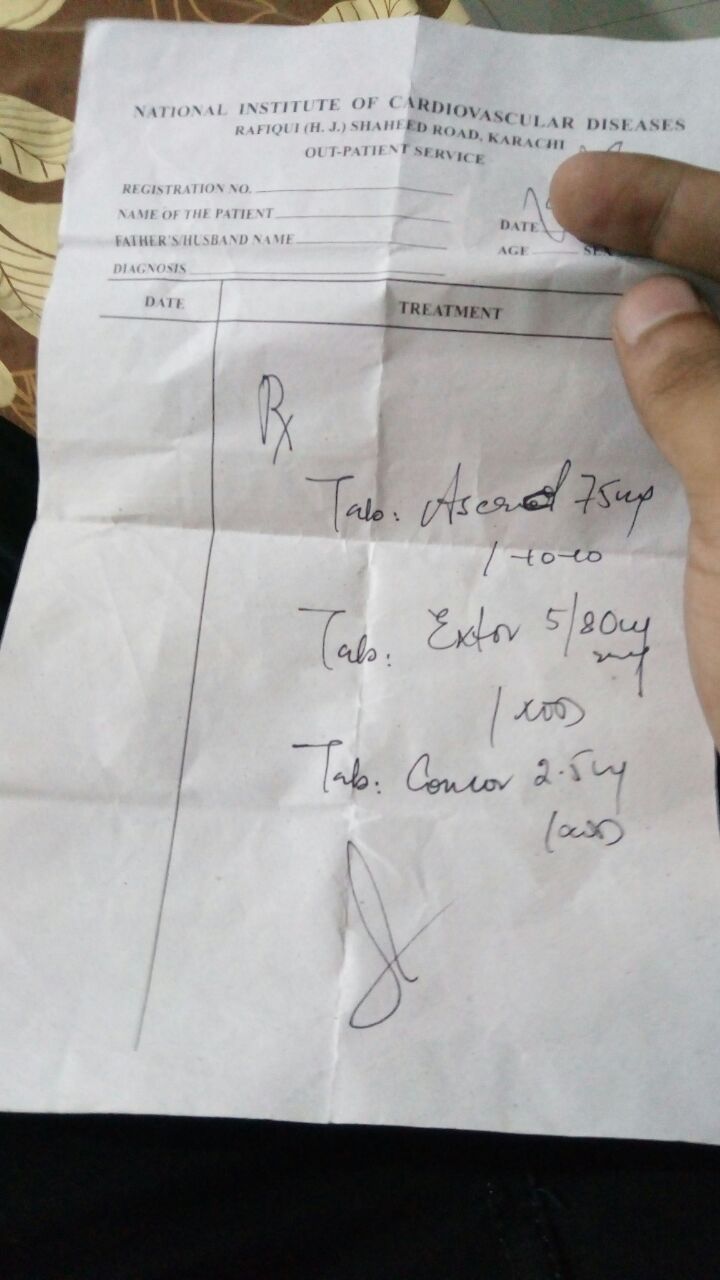 NATIONAL INSTITUTE OF CARDIOVASCULAR DISEASES
RAFIQUI (H. J.) SHAHEED ROAD, KARACHI
OUT-PATIENT SERVICE
REGISTRATION NO.
NAME OF THE PATIENT
DATE
FATHER'S/HUSBAND NAME
AGE SEX
DIAGNOSIS
DATE TREATMENT
Rx
Tab: 75mg
Tab: Extor 5/80mg
Tab: Concor 2.5mg